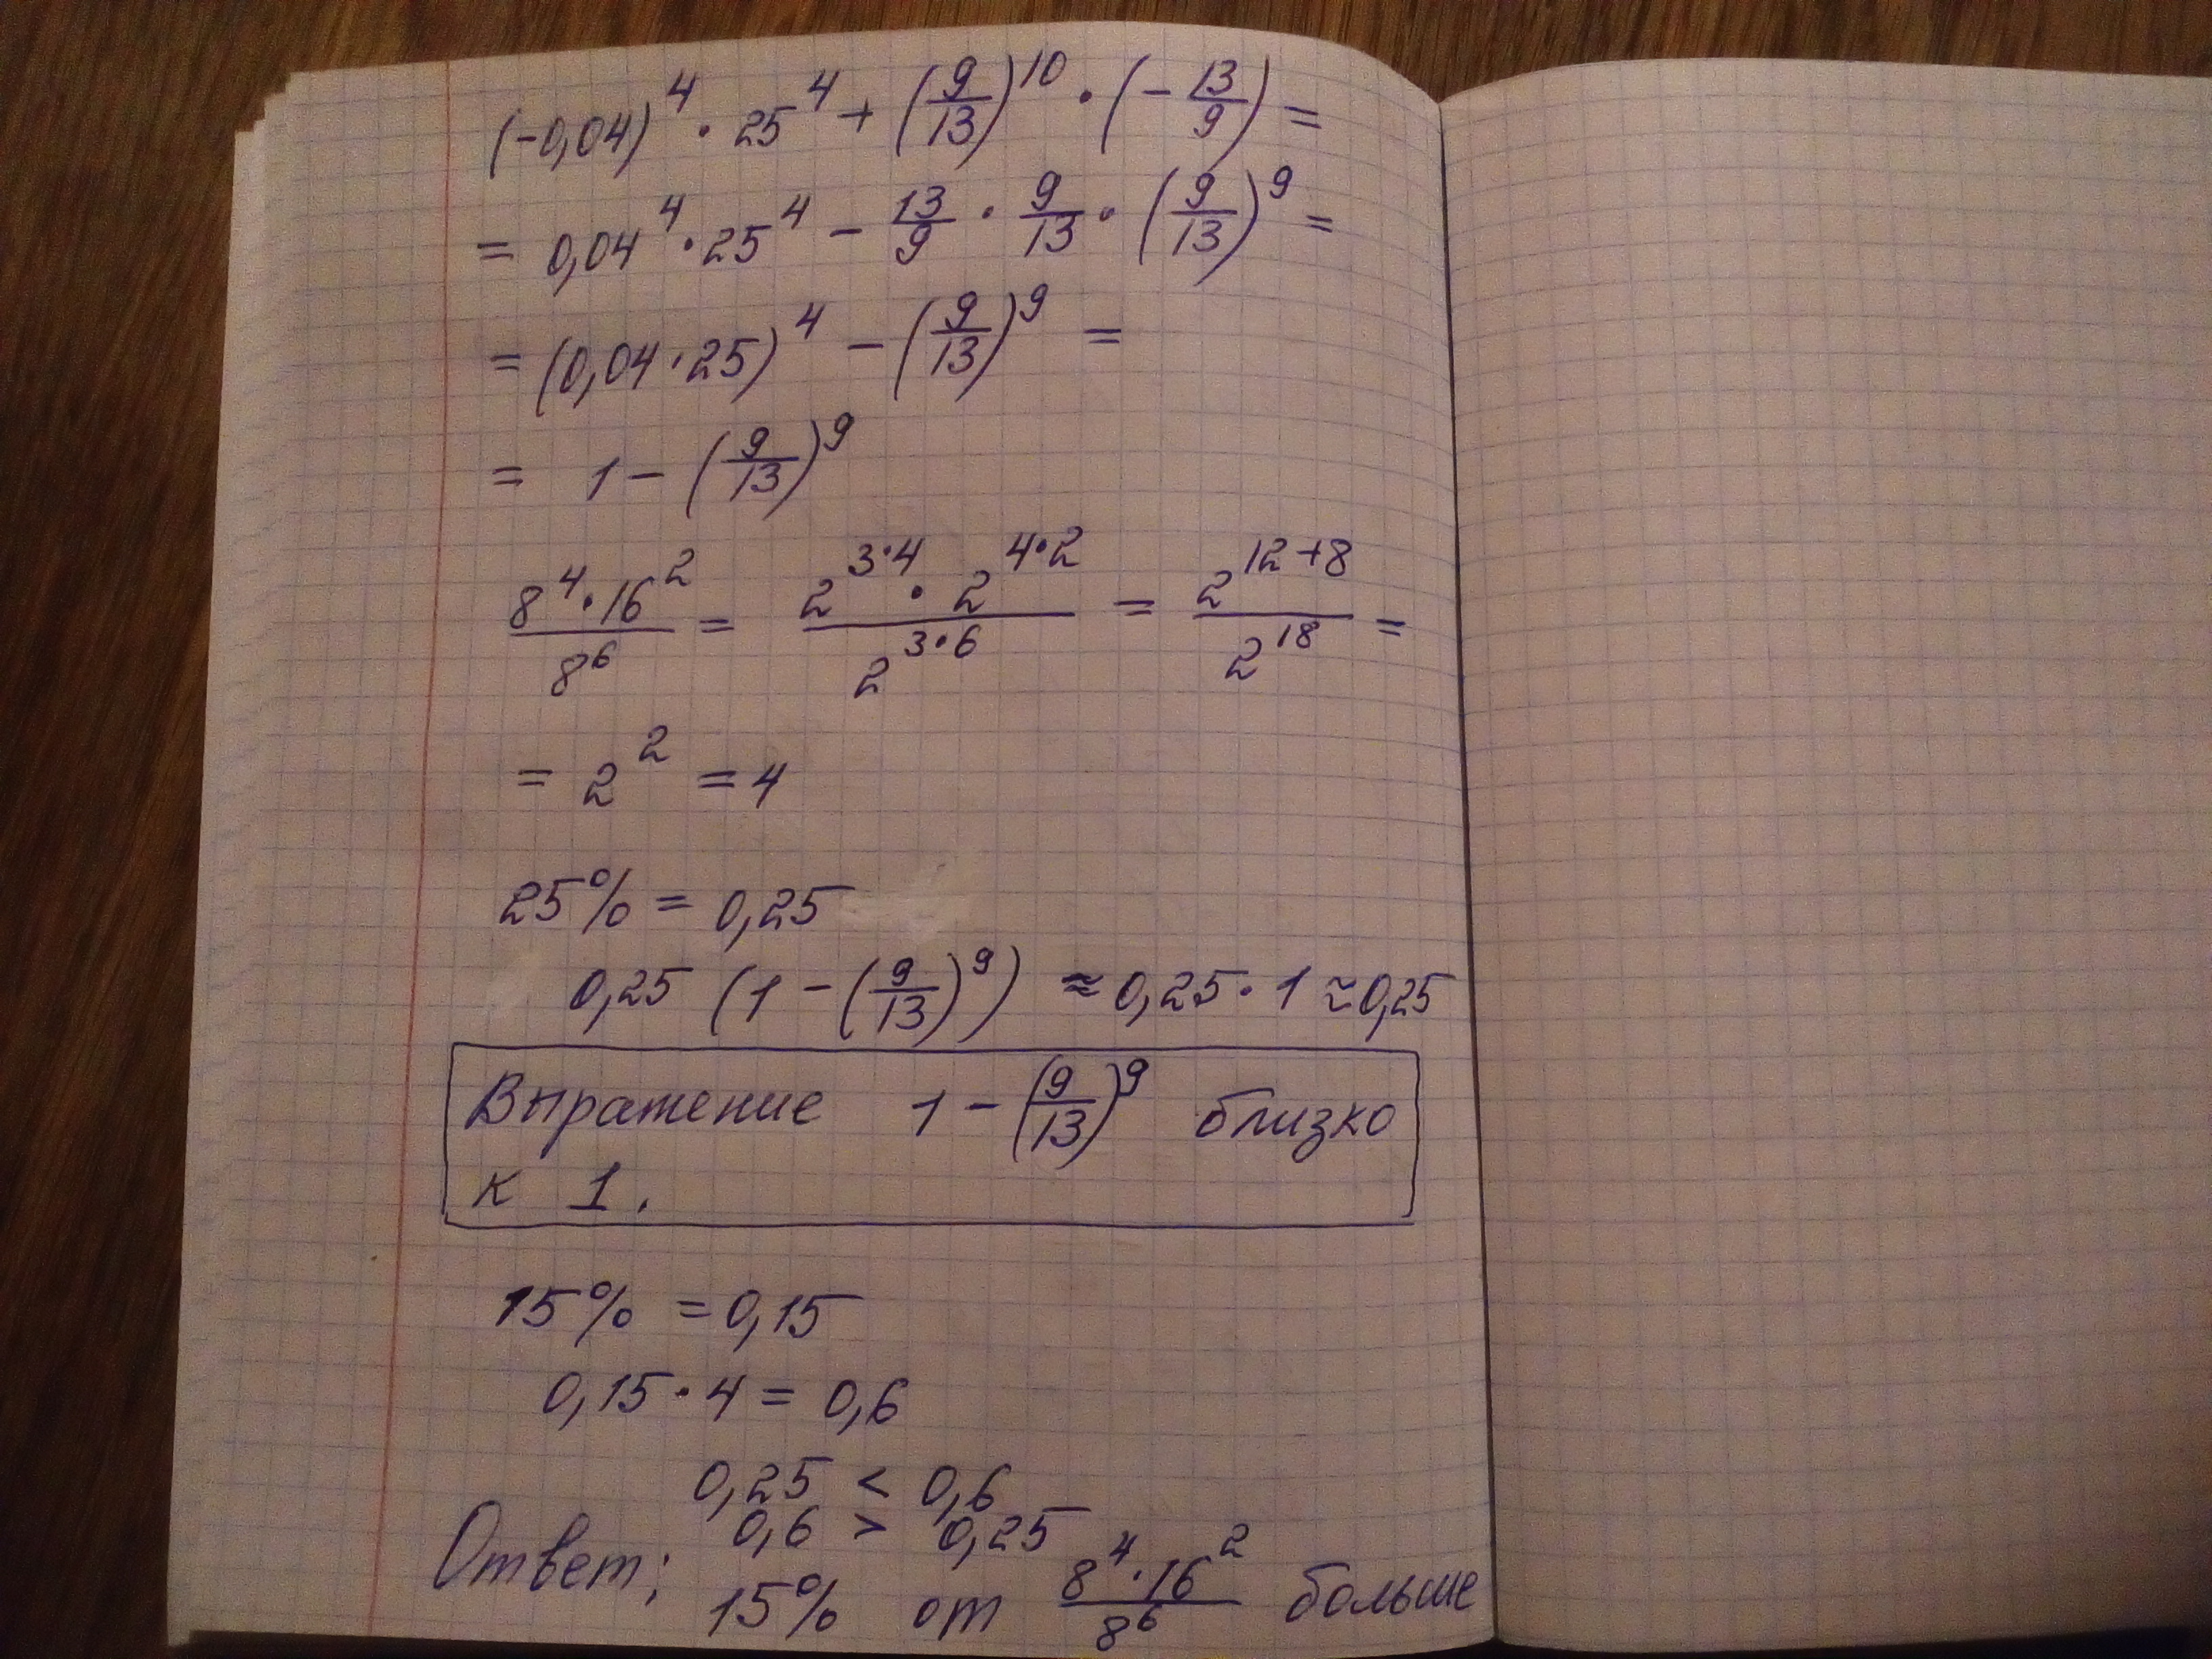 (-0,04)^4 · 25^4 + (9/13)^10 · (- 13/9) =
= 0,04^4 · 25^4 - 13/9 · 9/13 · (9/13)^9 =
= (0,04 · 25)^4 - (9/13)^9 =
= 1 - (9/13)^9
8^4 · 16^2 / 8^6 = 2^(3·4) · 2^(4·2) / 2^(3·6) = 2^(12+8) / 2^18 =
= 2^2 = 4
25% = 0,25
0,25 (1 - (9/13)^9) ≈ 0,25 · 1 ≈ 0,25
Выражение 1 - (9/13)^9 близко
к 1.
15% = 0,15
0,15 · 4 = 0,6
0,25 < 0,6
0,6 > 0,25
Ответ: 15% от 8^4 · 16^2 / 8^6 больше